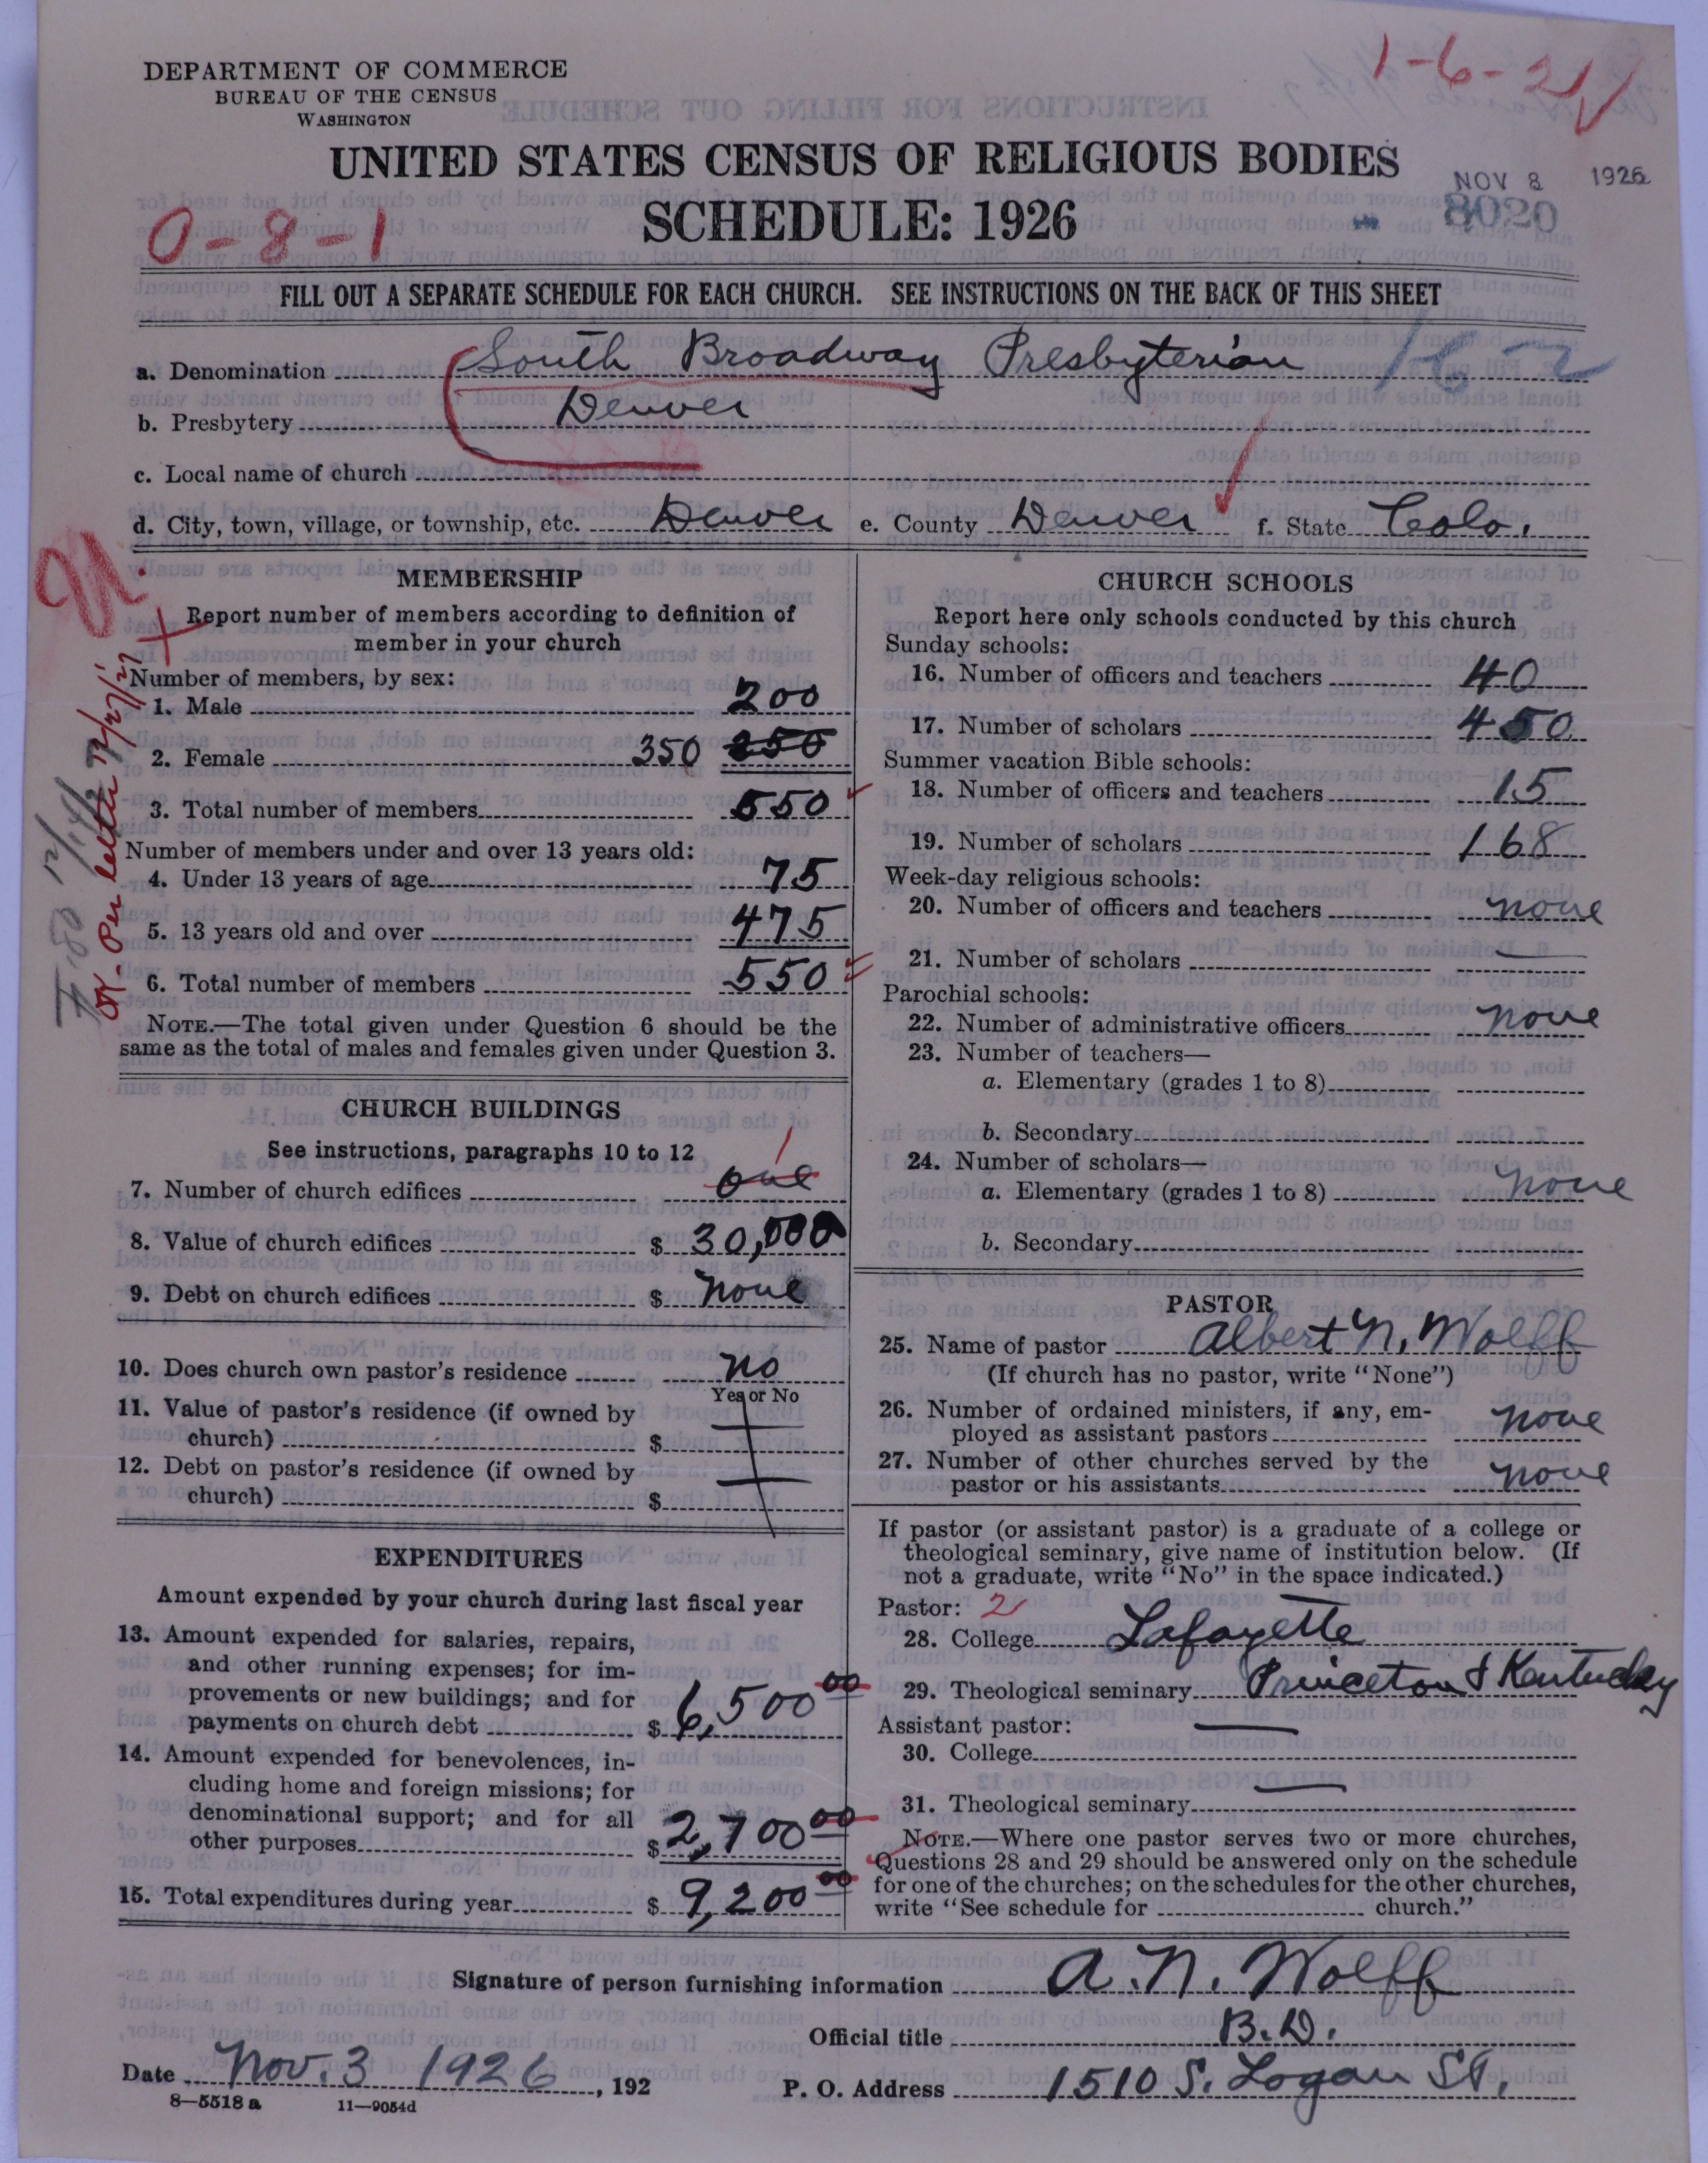 DEPARTMENT OF COMMERCE
BUREAU OF THE CENSUS
WASHINGTON
1-6-21
UNITED STATES CENSUS OF RELIGIOUS BODIES
SCHEDULE: 1926
NOV 8 1926
8020
0-8-1
FILL OUT A SEPARATE SCHEDULE FOR EACH CHURCH. SEE INSTRUCTIONS ON THE BACK OF THIS SHEET
a. Denomination South Broadway Presbyterian 162
b. Presbytery Denver
c. Local name of church
d. City, town, village, or township, etc. Denver e. County Denver f. State Colo.
MEMBERSHIP
Report number of members according to definition of
member in your church
Number of members, by sex:
1. Male 200
2. Female 350 250
3. Total number of members 550
Number of members under and over 13 years old:
4. Under 13 years of age 75
5. 13 years old and over 475
6. Total number of members 550
NOTE.—The total given under Question 6 should be the
same as the total of males and females given under Question 3.
OK. Per letter 12/27/27
CHURCH BUILDINGS
See instructions, paragraphs 10 to 12
7. Number of church edifices one 1
8. Value of church edifices $ 30,000
9. Debt on church edifices $ none
10. Does church own pastor's residence no
Yes or No
11. Value of pastor's residence (if owned by
church) $
12. Debt on pastor's residence (if owned by
church) $
EXPENDITURES
Amount expended by your church during last fiscal year
13. Amount expended for salaries, repairs,
and other running expenses; for im-
provements or new buildings; and for
payments on church debt $ 6,500 00
14. Amount expended for benevolences, in-
cluding home and foreign missions; for
denominational support; and for all
other purposes $ 2,700 00
15. Total expenditures during year $ 9,200 00
CHURCH SCHOOLS
Report here only schools conducted by this church
Sunday schools:
16. Number of officers and teachers 40
17. Number of scholars 450
Summer vacation Bible schools:
18. Number of officers and teachers 15
19. Number of scholars 168
Week-day religious schools:
20. Number of officers and teachers none
21. Number of scholars —
Parochial schools:
22. Number of administrative officers none
23. Number of teachers—
a. Elementary (grades 1 to 8)
b. Secondary
24. Number of scholars—
a. Elementary (grades 1 to 8) none
b. Secondary
PASTOR
25. Name of pastor Albert N. Wolff
(If church has no pastor, write "None")
26. Number of ordained ministers, if any, em-
ployed as assistant pastors none
27. Number of other churches served by the
pastor or his assistants none
If pastor (or assistant pastor) is a graduate of a college or
theological seminary, give name of institution below. (If
not a graduate, write "No" in the space indicated.)
Pastor: 2
28. College Lafayette
29. Theological seminary Princeton & Kentucky
Assistant pastor: —
30. College
31. Theological seminary —
NOTE.—Where one pastor serves two or more churches,
Questions 28 and 29 should be answered only on the schedule
for one of the churches; on the schedules for the other churches,
write "See schedule for church."
Signature of person furnishing information A. N. Wolff
Official title B.D.
Date Nov. 3 1926, 192
P. O. Address 1510 S. Logan St.
8—5518 a 11—9054d